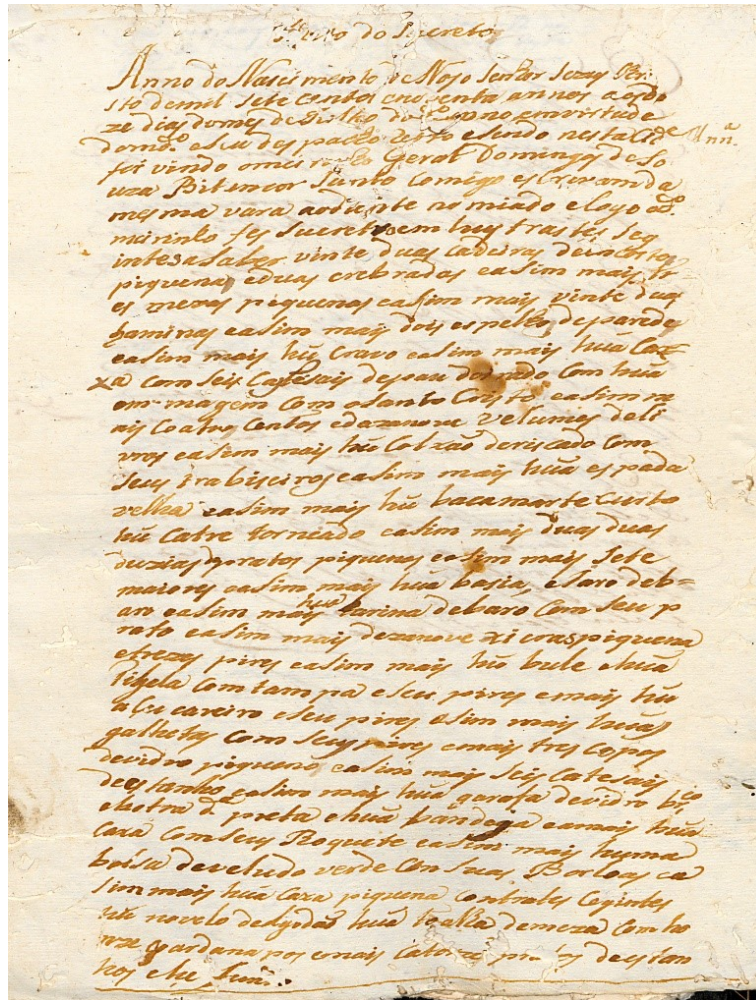 do Sucretos
Anno do Nascimento de Noso Senhor Jezus Cri
sto de mil sete centos e nosenta annos aos do
ze dias do mes de Julho do
do mdo. e seu despacho retro e sendo nesta Cide. Mnna.
foi vindo o meirinho Geral Domingos de So
uza Bitancor Junto Comigo escrivam da
mesma vara aodiente nomiado e logo o do.
mirinho fes sucresto em huns trastes seg
intes a saber vinte duas cadeiras de incosto
piquenas e duas crebradas easim mais tr
es mezas piquenas easim mais vinte duas
laminas easim mais dois espelhos de parede
easim mais hũ Cravo easim mais hũa Cai
xa Com seis Castesais de pau dorado Com hũa
magem Com o Santo Cristo easim ma
is Coatro Centos e dezanove velumes de li
vros easim mais hũ Colxão de riscado Com
seus trabiseiros easim mais hũa espada
velha easim mais hũ bacamarte Curto
hũ Catre torneado easim mais duas duas
duzias de pratos piquenos easim mais sete
maiores easim mais hũa basia, e Jaro de b=
aro easim mais hũa tarina de baro Com seu p
rato easim mais dezanove xicras piquenas
e treze pires easim mais hũ bule e hũa
Tigela Com tampa e seu pires e mais hũ
asucareiro e seu pires easim mais huãs
galhetas Com seus pires e mais tres Copos
de vidro piquenos easim mais seis Catesais
de estanho easim mais hũa garafa de vidro bco.
e outra da. preta e hũa bandega e amais hũa
Caxa Com seus Roquete easim mais huma
bolsa de veludo verde Con suas Borlas ea
sim mais hũa Caxa piquena Contrates Ceyintes
hũ novelo de algodão hũa toalha de meza Com ho
nze gardanapos e mais Catorze pratos de estan
hos e hu